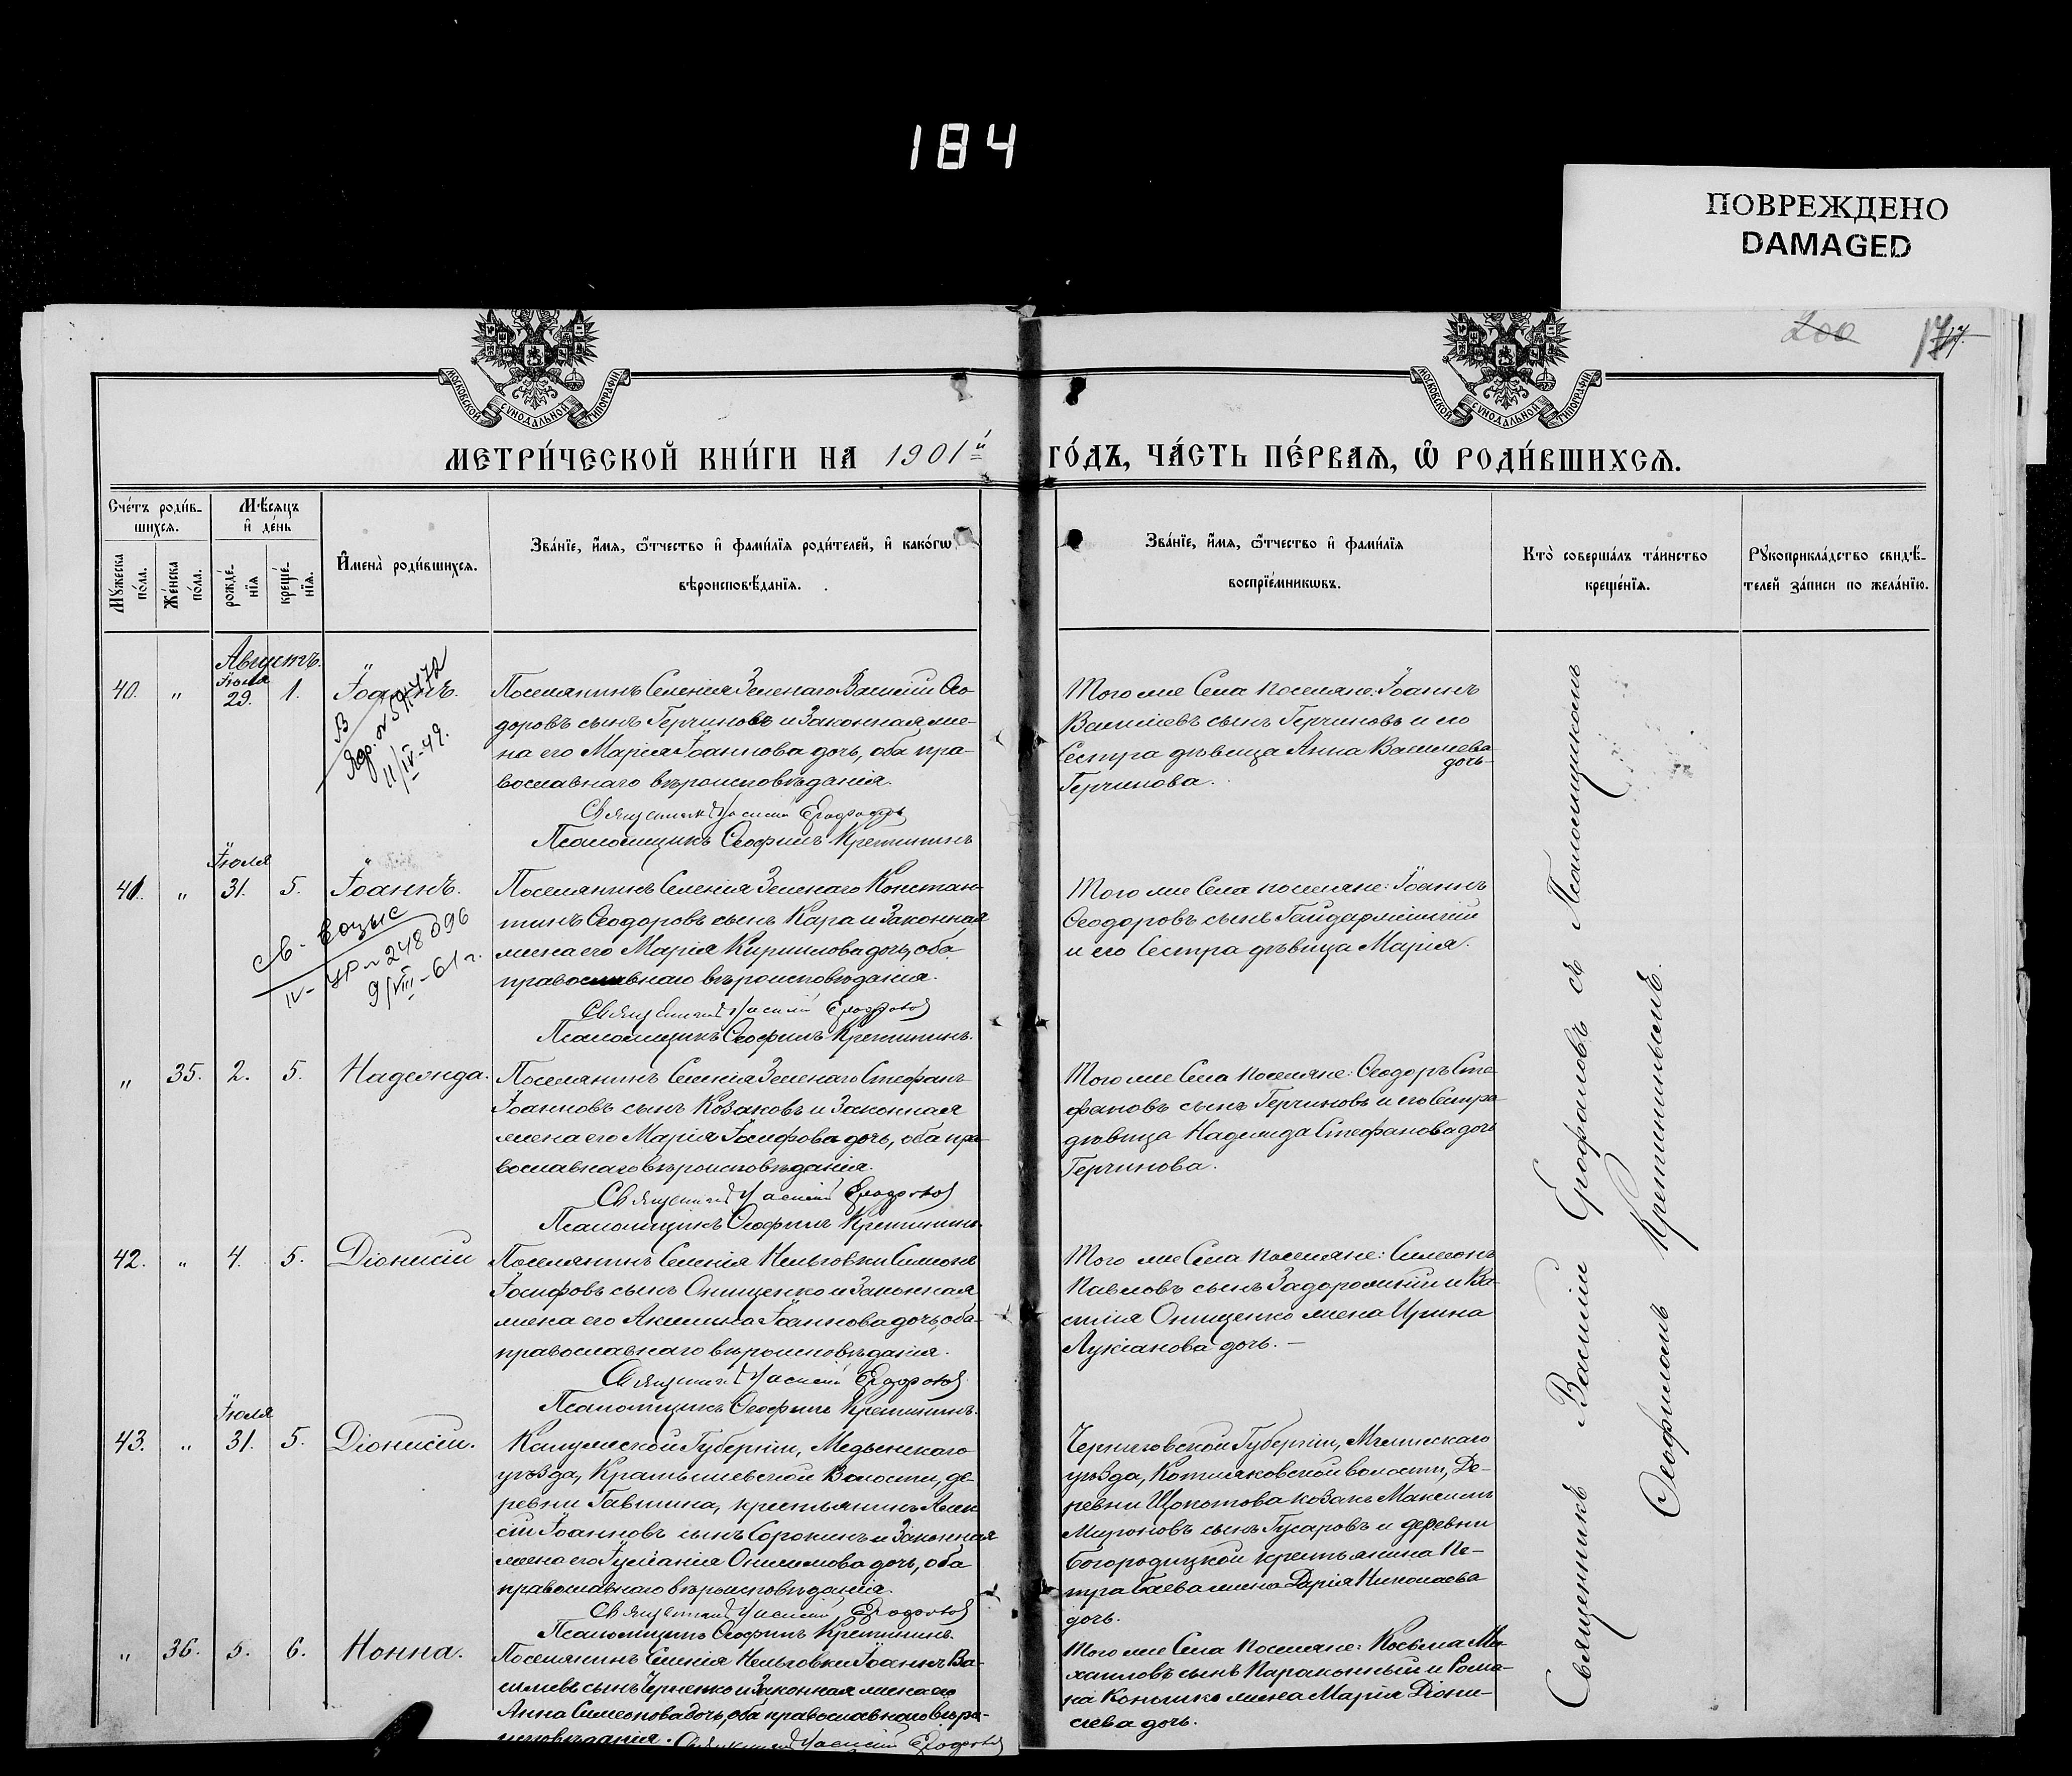 184
ПОВРЕЖДЕНО
DAMAGED
200
МОСКОВСКОЙ СѴНОДАЛЬНОЙ ТИПОГРАФІИ
МОСКОВСКОЙ СѴНОДАЛЬНОЙ ТИПОГРАФІИ
МЕТРИ́ЧЕСКОЙ КНИ́ГИ НА 1901й ГО́ДЪ, ЧА́СТЬ ПЕ́РВАѦ, Ѡ РОДИ́ВШИХСѦ.
Сче́тъ роди́в-
шихсѧ.
Мѣ́сѧцъ
и де́нь
Мꙋ́жеска
по́ла.
Же́нска
по́ла.
рожде́-
нїѧ
креще́-
нїѧ.
Имена̀ роди́вшихсѧ.
Зва́нїе, и́мѧ, ѻ́тчество и фами́лїѧ роди́телей, и како́гѡ
вѣроисповѣ́данїѧ.
Зва́нїе, и́мѧ, ѻ́тчество и фами́лїѧ
воспрїе́мникѡвъ.
Кто̀ соверша́лъ та́инство
креще́нїѧ.
Рꙋкоприкла́дство свидѣ́-
телей за́писи по жела́нїю.
Августъ.
40. " Іюля 29. 1. Іоаннъ.
11/IV-49.
Поселянинъ Селенія Зеленаго Василій Ѳео-
доровъ сынъ Герчиновъ и Законная же-
на его Марія Іоаннова дочь, оба пра-
вославнаго вѣроисповѣданія.
Священникъ Василій Ерофаловъ
Псаломщикъ Ѳеофилъ Крепинин
Того же Села поселяне: Іоаннъ
Васильевъ сынъ Герчиновъ и его
Сестра дѣвица Анна Васильева
дочь
Герчинова.
Іюля
41. " 31. 5. Іоаннъ.
248096
9/VIII-61 г.
Поселянинъ Селенія Зеленаго Констан-
тинъ Ѳеодоровъ сынъ Кара и Законная
жена его Марія Кириллова дочь, оба
православнаго вѣроисповѣданія.
Священникъ Василій Ерофаловъ
Псаломщикъ Ѳеофилъ
Того же Села поселяне: Іоаннъ
Ѳеодоровъ сынъ Гайдаржійскій
и его Сестра дѣвица Марія.
" 35. 2. 5. Надежда.
Поселянинъ Селенія Зеленаго Стефанъ
Іоанновъ сынъ Козаковъ и Законная
жена его Марія Іосифова дочь, оба пра-
вославнаго вѣроисповѣданія.
Священникъ Василій Ерофаловъ
Псаломщикъ Ѳеофилъ
Того же Села поселяне: Ѳеодоръ Сте-
фановъ сынъ Герчиновъ и его Сестра
дѣвица Надежда Стефанова дочь
Герчинова.
42. " 4. 5. Діонисій
Поселянинъ Селенія Нельговки Симеонъ
Іосифовъ сынъ Онищенко и Законная
жена его Акилина Іоаннова дочь, оба
православнаго вѣроисповѣданія.
Священникъ Василій Ерофаловъ
Псаломщикъ Ѳеофилъ
Того же Села поселяне: Симеонъ
Павловъ сынъ Задорожній и Ва-
силія Онищенко жена Ирина
Лукіанова дочь. –
Іюля
43. " 31. 5. Діонисій.
Калужской Губерніи, Медынскаго
уѣзда, Волости, де-
ревни Гавшина, крестьянинъ Алек
сій Іоанновъ сынъ Сорокинъ и Законная
жена его Іуліанія Онисимова дочь, оба
православнаго вѣроисповѣданія.
Священникъ Василій Ерофаловъ
Псаломщикъ Ѳеофилъ
Черниговской Губерніи, Мглинскаго
уѣзда, Котляковской волости, Де-
ревни козакъ Максимъ
Мироновъ сынъ Гусаровъ и деревни
Богородицкой крестьянина Пе-
тра Баева жена Дарія Николаева
дочь.
" 36. 5. 6. Нонна.
Поселянинъ Селенія Нельговки Іоаннъ Ва-
сильевъ сынъ Черненко и Законная жена его
Анна Симеонова дочь, оба православнаго вѣро-
исповѣданія. Священникъ Василій Ерофаловъ
Того же Села поселяне: Косьма Ми-
хаиловъ сынъ Параконный и Рома-
на жена Марія Діони-
сіева дочь.
Священникъ Василій Ерофаловъ съ Псаломщикомъ
Ѳеофиломъ